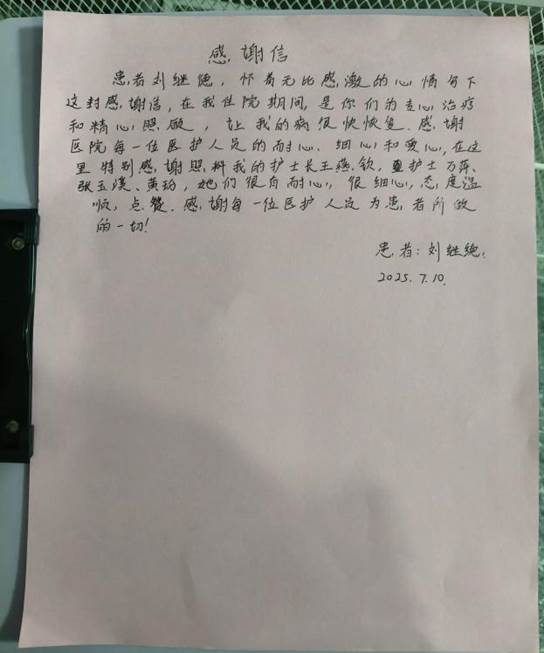 感谢信
患者刘继绝,怀着无比感激的心情写下
这封感谢信,在我住院期间,是你们的专心治疗
和精心照顾,让我的病很快恢复。感谢
医院每一位医护人员的耐心、细心和爱心,在这
里特别感谢照料我的护士长王燕钦,护士万萍、
张玉溪、黄玲,她们很有耐心,很细心,态度温
顺,点赞。感谢每一位医护人员为患者所做
的一切!
患者:刘继绝
2025.7.10.